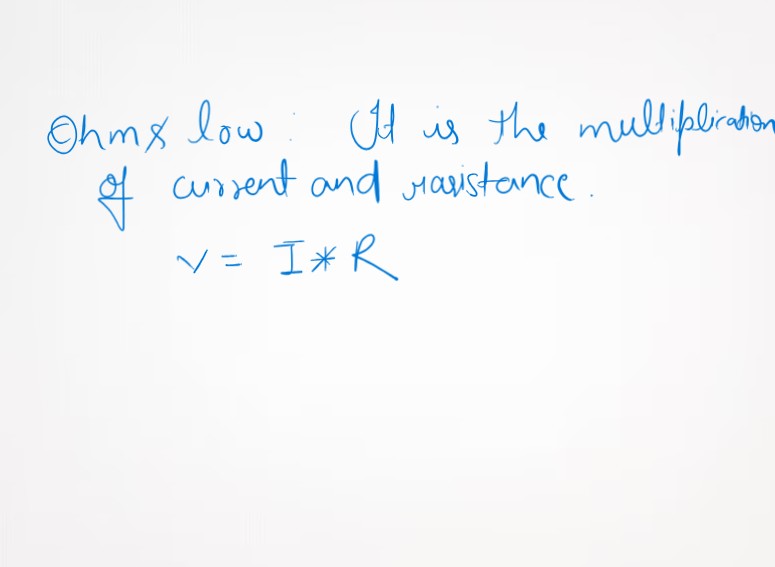 Ohms low : It is the multiplication
of current and rasistance.
V = I * R